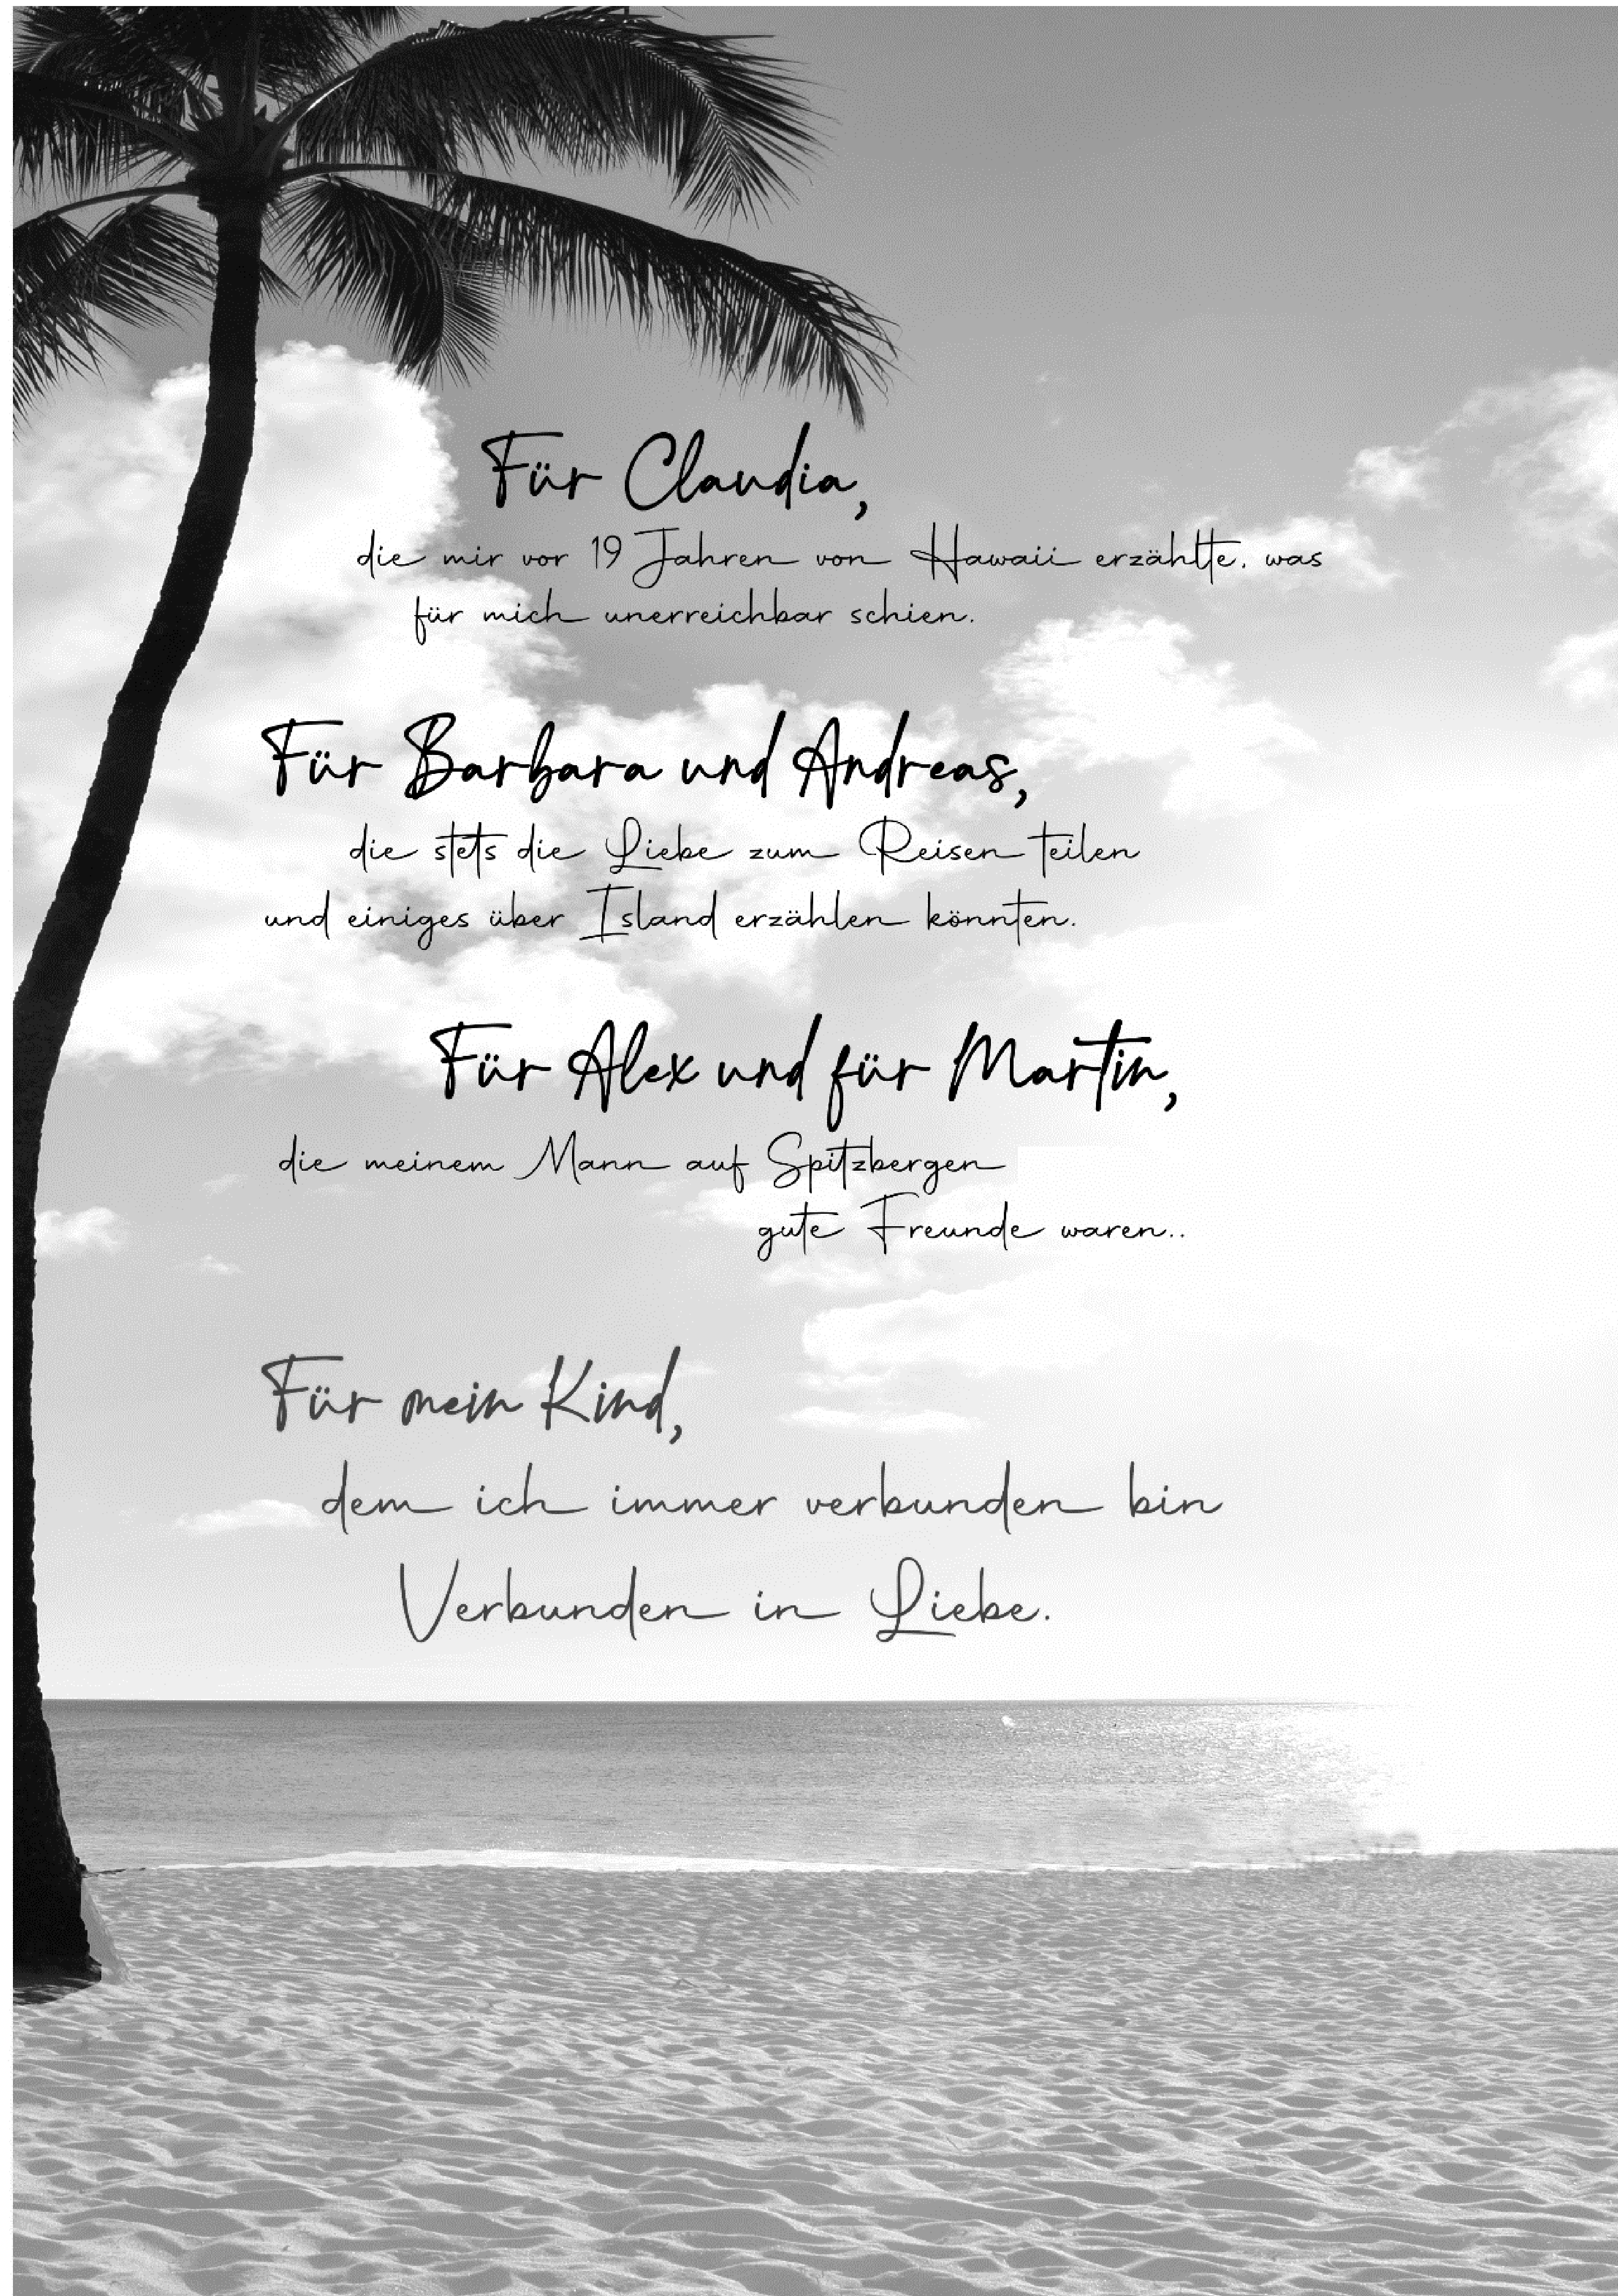 Für Claudia,
die mir vor 19 Jahren von Hawaii erzählte. was
für mich unerreichbar schien.
Für Barbara und Andreas,
die stets die Liebe zum Reisen teilen
und einiges über Island erzählen könnten.
Für Alex und für Martin,
die meinem Mann auf Spitzbergen
gute Freunde waren..
Für mein Kind,
dem ich immer verbunden bin
Verbunden in Liebe.